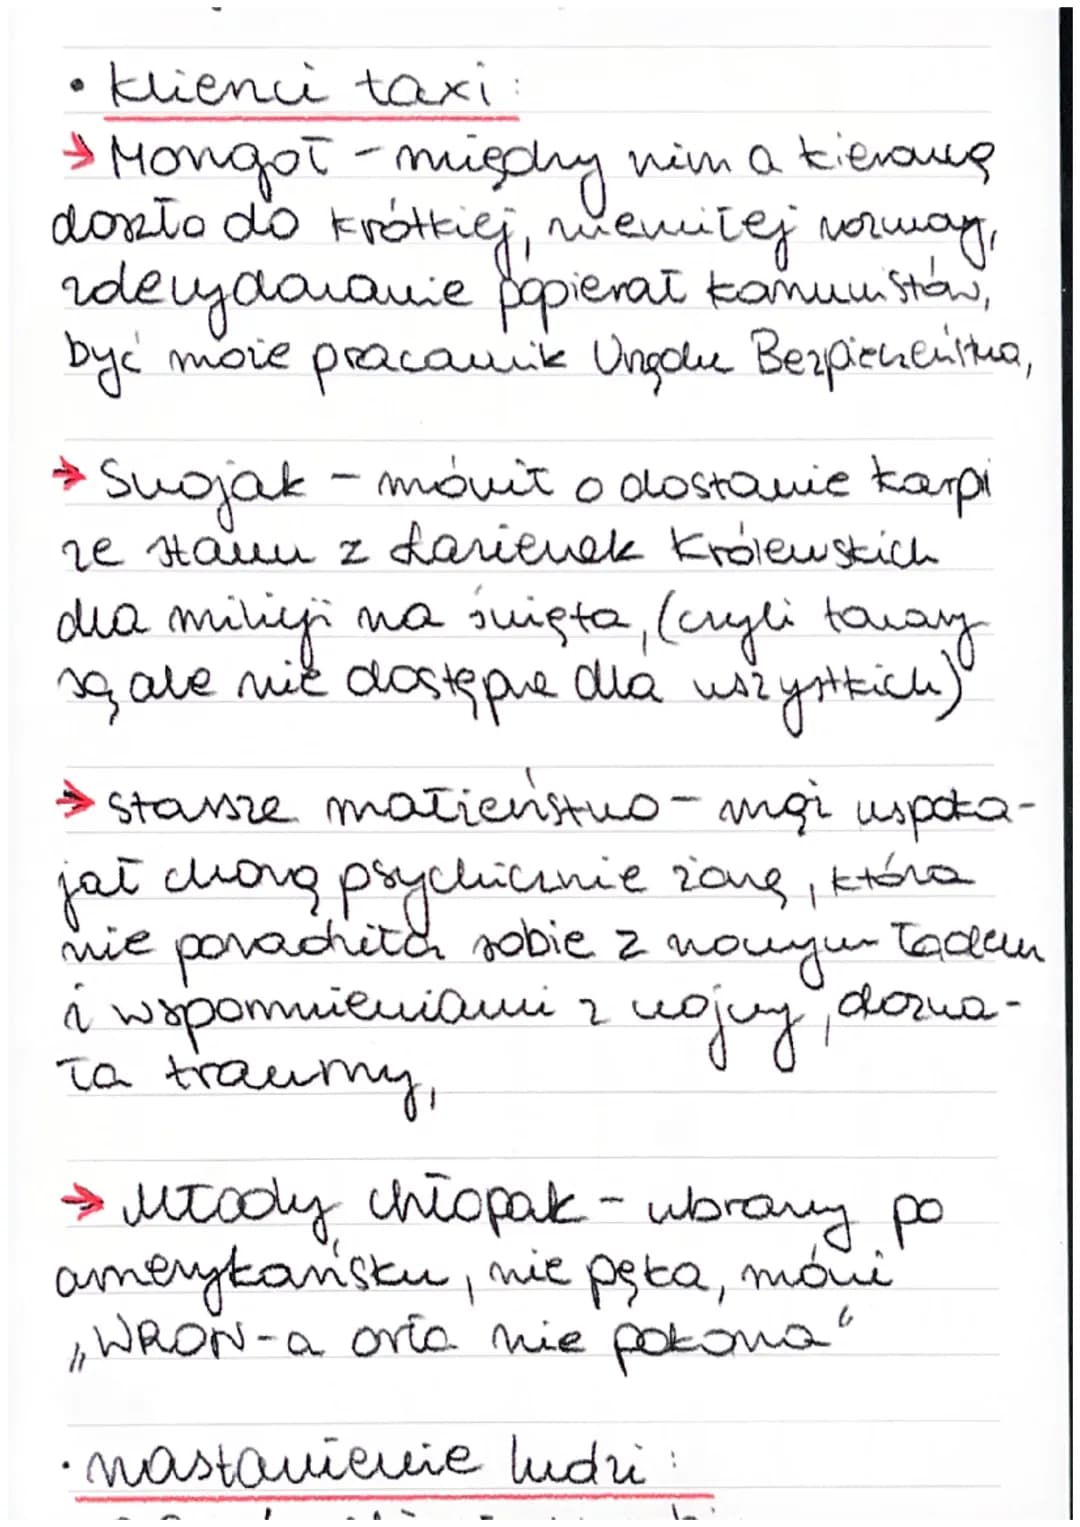 • klienci taxi:
→ Mongoł - między nim a kierowcą
doszło do krótkiej, niemiłej rozmowy,
zdecydowanie popierał komunistów,
być może pracownik Urzędu Bezpieczeństwa,
→ Swojak - mówił o dostawie karpi
ze stawu z Łazienek Królewskich
dla milicji na święta, (czyli towary
są ale nie dostępne dla wszystkich)
→ starsze małżeństwo - mąż uspoka-
jał chorą psychicznie żonę, która
nie poradziła sobie z nowym ładem
i wspomnieniami z wojny, dozna-
ła traumy,
→ Młody chłopak - ubrany po
amerykańsku, nie pęka, mówi
„WRON-a orła nie pokona"
• nastawienie ludzi: